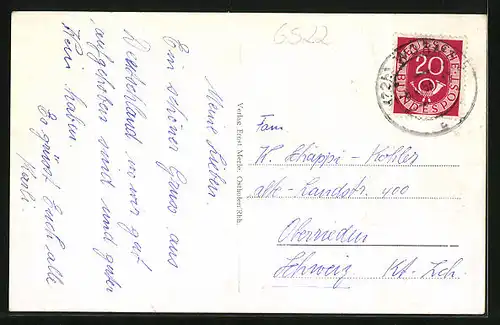 6522
Meine Lieben.
Ein schöner Gruss aus
Deutschland, wo wir gut
aufgehoben sind und guten
Wein haben.
Es grüsst Euch alle
Karli.
Verlag Ernst Merke, Osthofen/Rhh.
DEUTSCHE
20
BUNDESPOST
Fam
W. Schäppi-Köhler
alte-Landstr. 400
Oberrieden
Schweiz Kt. Zch.